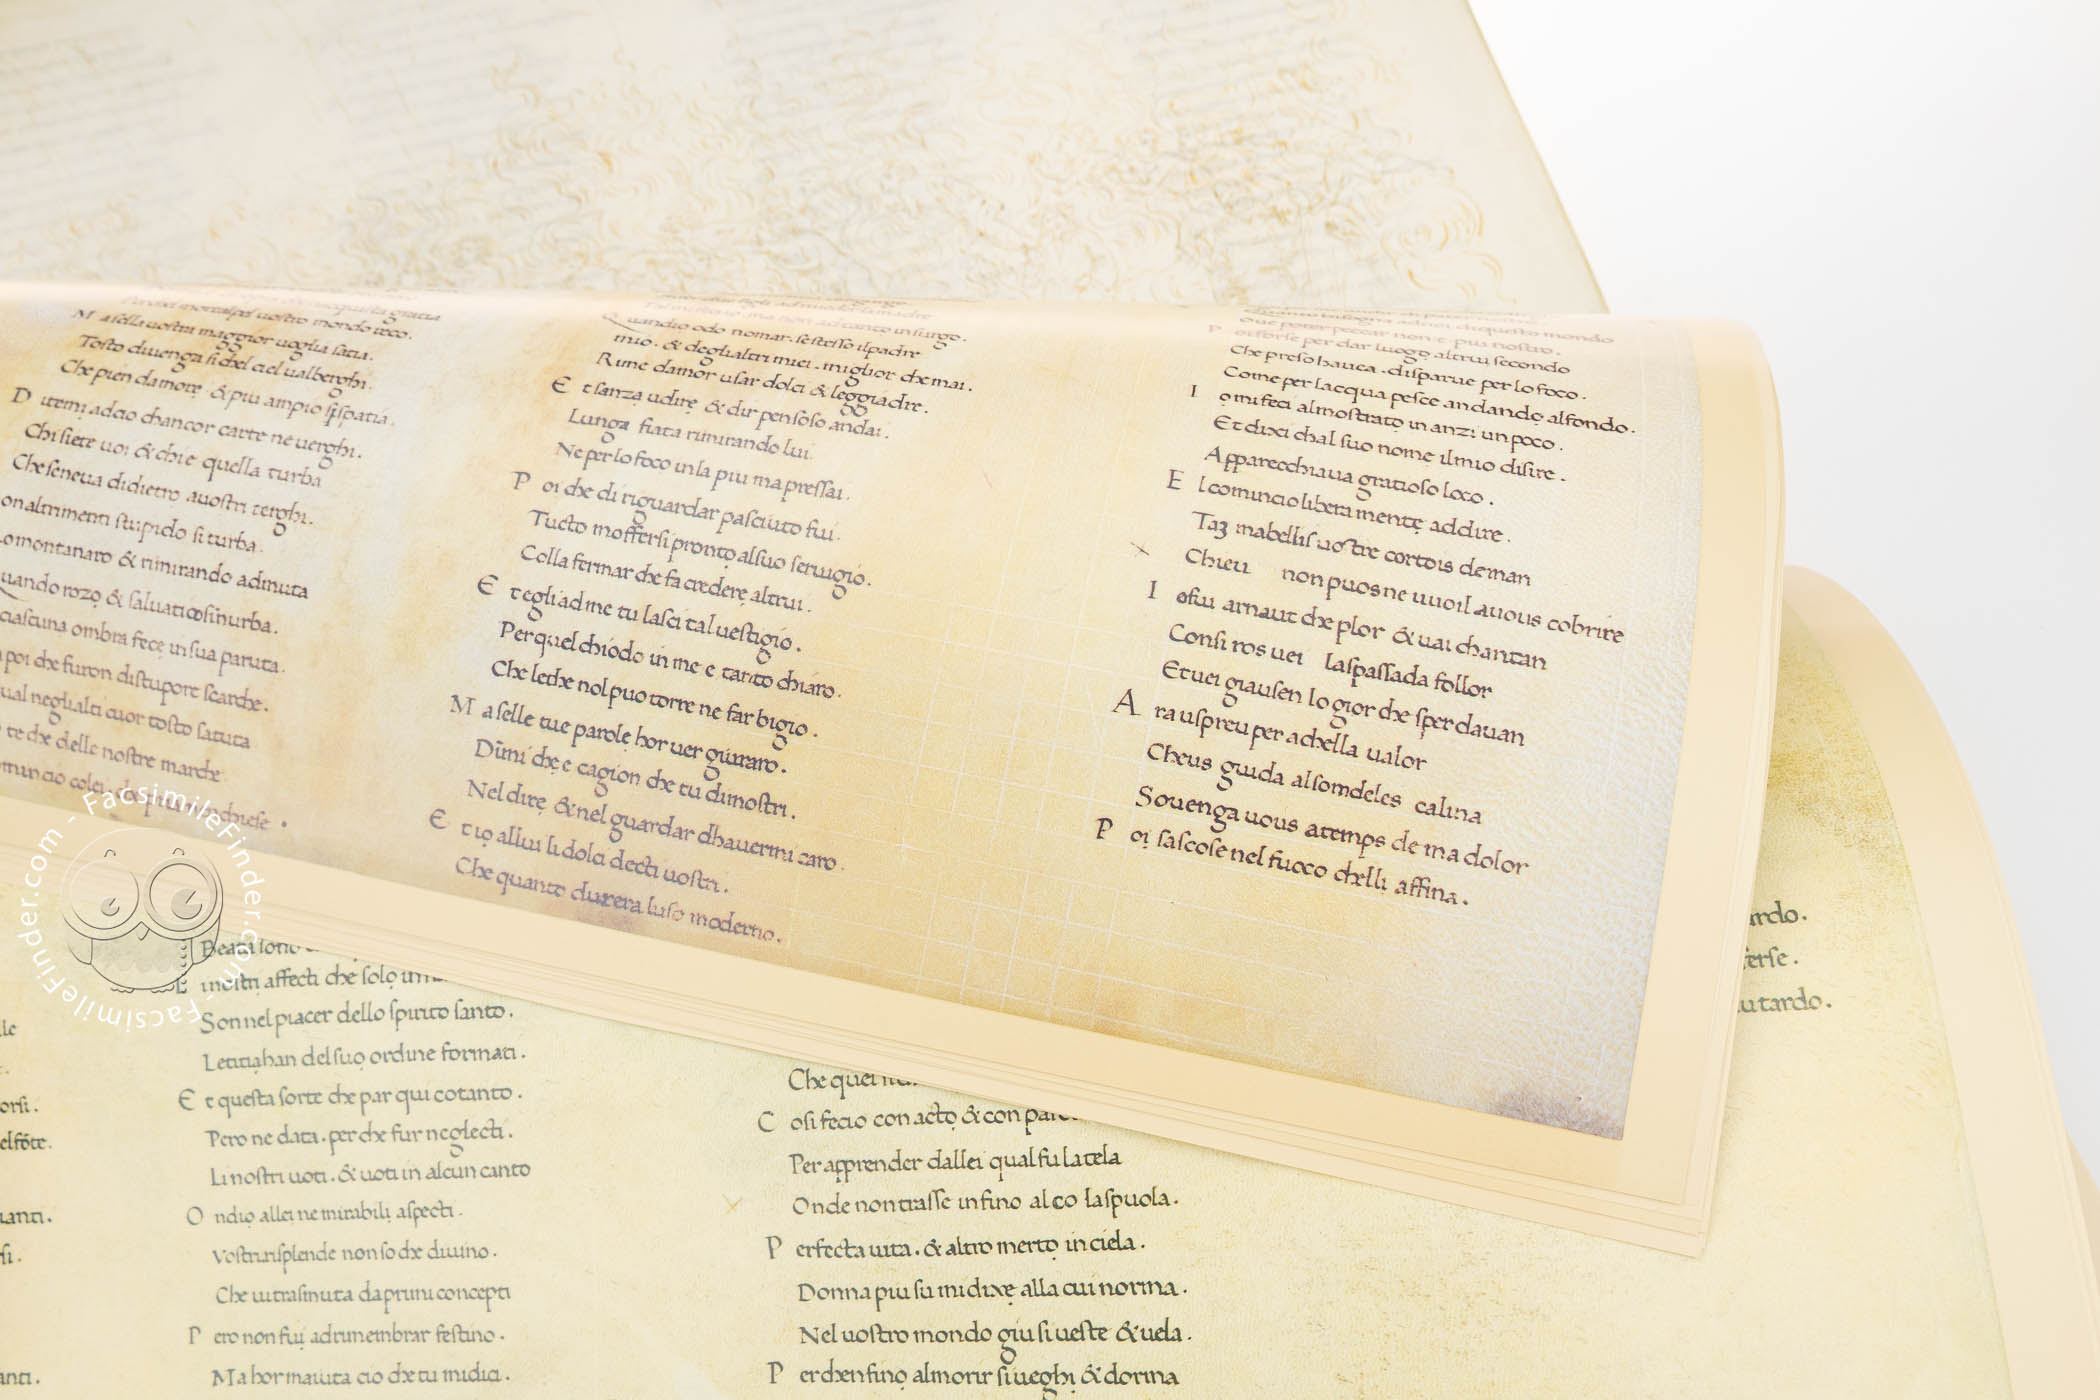 M a sella uostra maggior uoglia satia.
Tosto diuenga si chel ciel ualberghi.
Che pien damore & piu ampio si spatia.
D itemi adcio chancor carte ne uerghi.
Chi siete uoi & chi e quella turba
Che seneua didietro auostri terghi.
on altrimenti stupido si turba.
Lo montanaro & rimirando admuta
uando rozo & saluatico sinurba.
ciascuna ombra fece in sua paruta.
poi che furon distupore scarche.
ual neglialti cuor tosto satuta
te che delle nostre marche
omincio colei che pria chiese.
Q uandio odo nomar. se stesso il padre
mio. & deglialtri miei. miglior che mai.
Rime damor usar dolci & leggiadre.
E t sanza udire & dir pensoso andai.
Lunga fiata rimirando lui
Ne per lo foco in la piu mapressai.
P oi che di riguardar pasciuto fui.
Tucto moffersi pronto alsuo seruigio.
Colla fermar che fa credere altrui.
E t egli ad me tu lasci tal uestigio.
Per quel chiodo in me e tanto chiaro.
Che lethe nol puo torre ne far bigio.
M a selle tue parole hor uer giuraro.
Dimi che e cagion che tu dimostri.
Nel dire & nel guardar dhauermi caro.
E t io allui li dolci decti uostri.
Che quanto durera luso moderno.
Oue poter peccar non e piu nostro.
P oi forse per dar luogo altrui secondo
Che preso hauea. disparue per lo foco.
Come per lacqua pesce andando alfondo.
I o mi feci al mostrato inanzi un poco.
Et dixi chal suo nome il mio disire.
Apparecchiaua gratioso loco.
E l comincio libera mente addire.
Taz mabellis uostre cortois deman
Chieu non puos ne uuoil auous cobrire
I esui arnaut che plor & uai chantan
Consiros uei laspassada follor
Et uei giausen lo gior che sper dauan
A ra uspreu per achella ualor
Cheus guida alsomdeles calina
Souenga uous atemps de ma dolor
P oi sascose nel fuoco chelli affina.
Beata sono
L inostri affecti che solo
Son nel piacer dello spirito santo.
Letitia han del suo ordine formati.
E t questa sorte che par qui cotanto.
Pero ne data. per che fur neglecti.
Li nostri uoti. & uoti in alcun canto
O ndio allei ne mirabili aspecti.
Vostri risplende non so che diuino.
Che ui trasmuta da primi concepti
P ero non fui ad rimembrar festino.
Ma hor maiuita cio che tu midici.
Che quel
C osi fecio con acto & con
Per apprender dallei qual fu la tela
Onde non trasse infino al co laspuola.
P erfecta uita. & altro merto inciela.
Donna piu su mi dixe alla cui norma.
Nel uostro mondo giu si ueste & uela.
P erchenfino almorir si ueghi & dorma
lle
orsi.
elfõte.
uanti.
si.
anti.
ardo.
ferse.
tardo.
FacsimileFinder.com - FacsimileFinder.com - FacsimileFinder.com